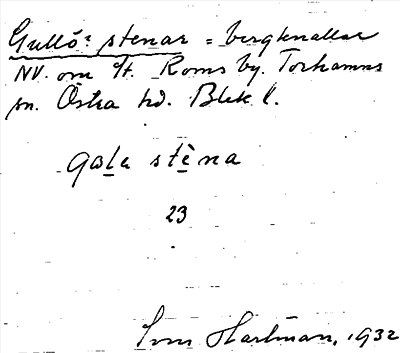 Gullö: stenar = bergknallar
NV. om St. Roms by. Torhamns
sn. Östra hd. Blek. l.
gale stèna
23
Hartman, 1932